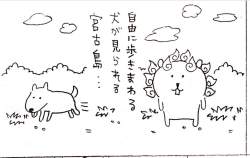 自由に歩きまわる
犬が見られる
宮古島…